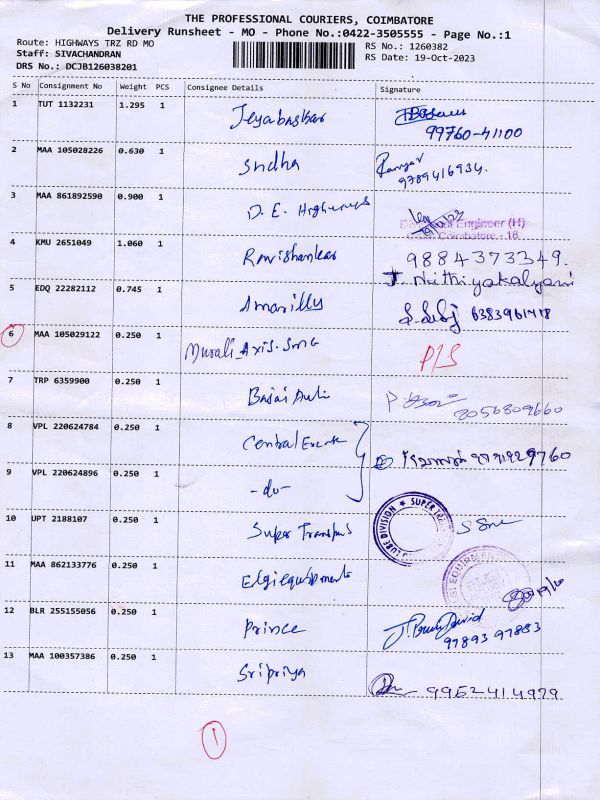 THE PROFESSIONAL COURIERS, COIMBATORE
Delivery Runsheet - MO - Phone No.:0422-3505555 - Page No.:1
Route: HIGHWAYS TRZ RD MO
RS No.: 1260382
Staff: SIVACHANDRAN
RS Date: 19-Oct-2023
DRS No.: DCJB126038201
S No Consignment No Weight PCS Consignee Details Signature
1 TUT 1132231 1.295 1 Jeyabaskar
99760-41100
2 MAA 105028226 0.630 1 Sudha
9789416934.
3 MAA 861892590 0.900 1 D.E. Highways
Engineer (H)
Coimbatore - 18
4 KMU 2651049 1.060 1 Ravishankar 9884373349.
J. Nithiyakalyani
5 EDQ 22282112 0.745 1 Amarilly
6 MAA 105029122 0.250 1 Murali_Axis.Smg P/S
7 TRP 6359900 0.250 1 Bajaj Auto 8056809660
8 VPL 220624784 0.250 1 Central Excise
9 VPL 220624896 0.250 1 -do-
10 UPT 2188107 0.250 1 Super Transports
LUBE DIVISION ★ SUPER
11 MAA 862133776 0.250 1 Elgi equipments
EQUIPMEN
12 BLR 255155056 0.250 1 Prince
97893 97883
13 MAA 100357386 0.250 1 Sripriya 9952414979
1